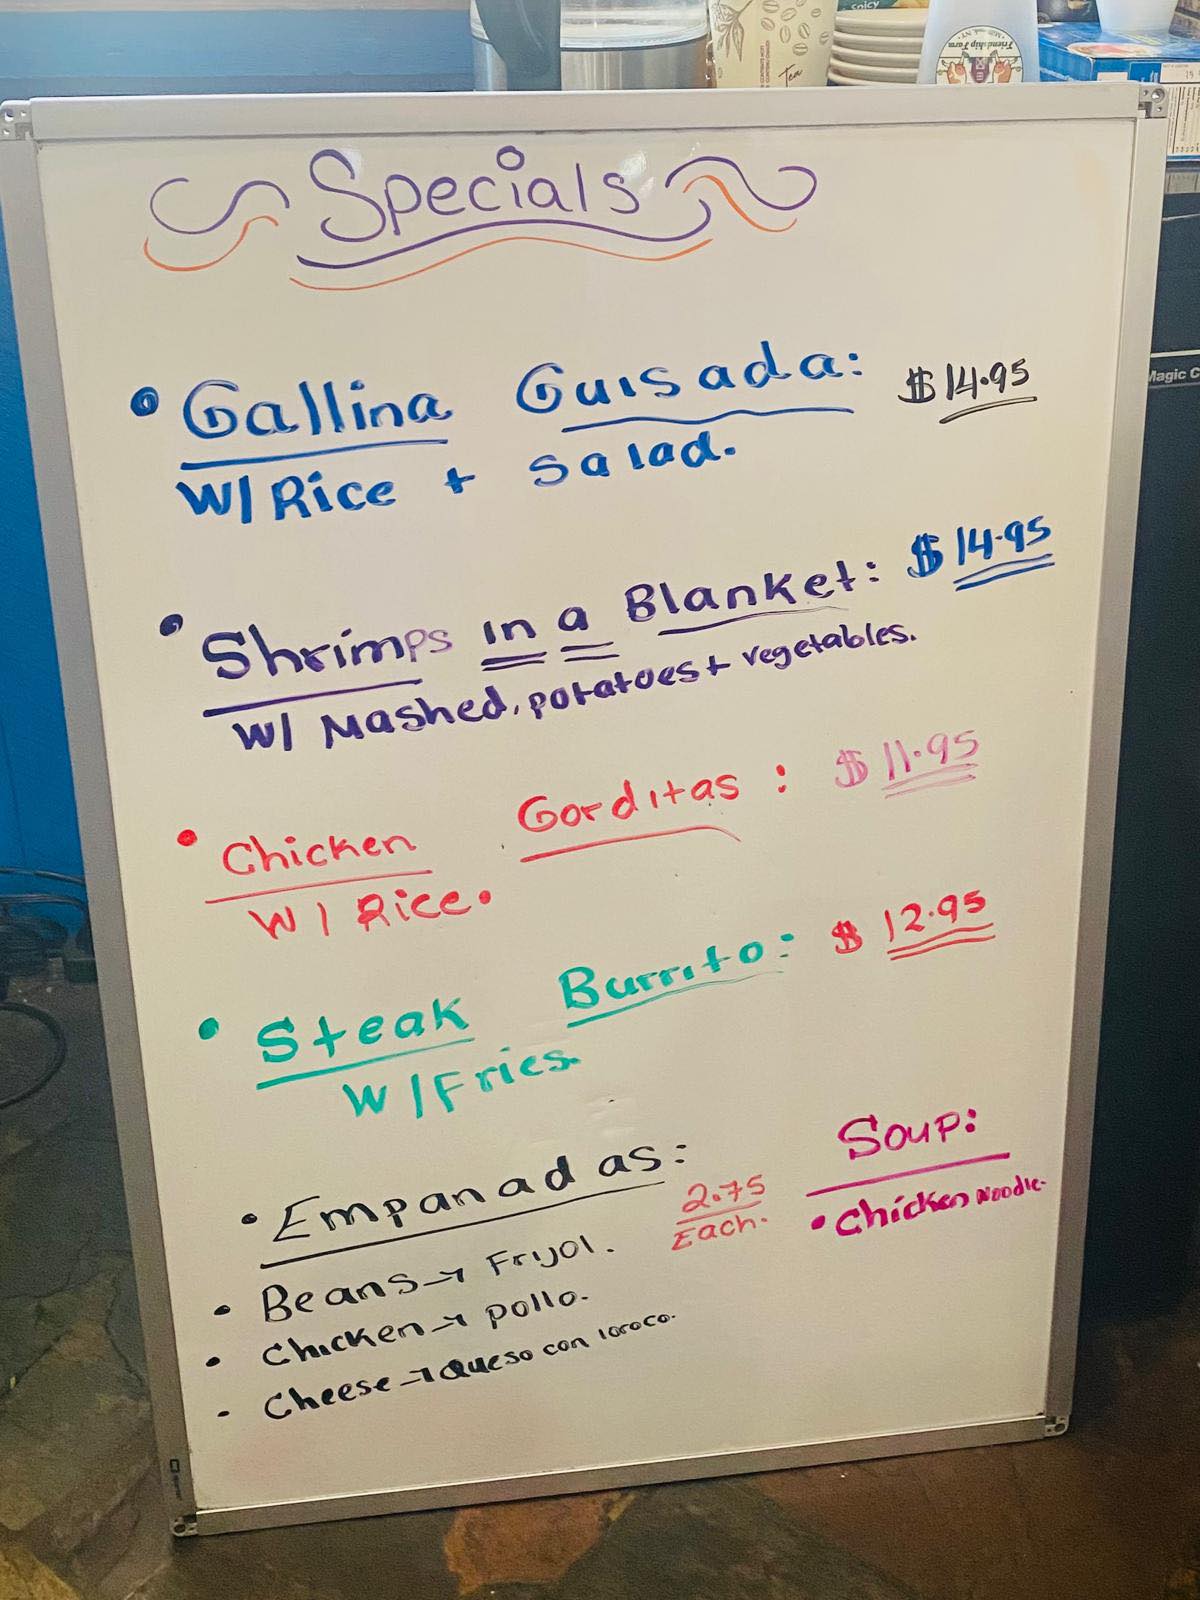 Spicy
Tea
Friendship Farm
Magic C
Specials
• Gallina Guisada: $14.95
W/ Rice + Salad.
• Shrimps in a Blanket: $14.95
W/ Mashed, potatoes + vegetables.
• Chicken Gorditas : $11.95
W/ Rice.
• Steak Burrito: $12.95
W/Fries.
• Empanadas: 2.75 Each.
• Beans → Frijol.
• Chicken → pollo.
- Cheese → Queso con loroco.
Soup:
• Chicken Noodle.